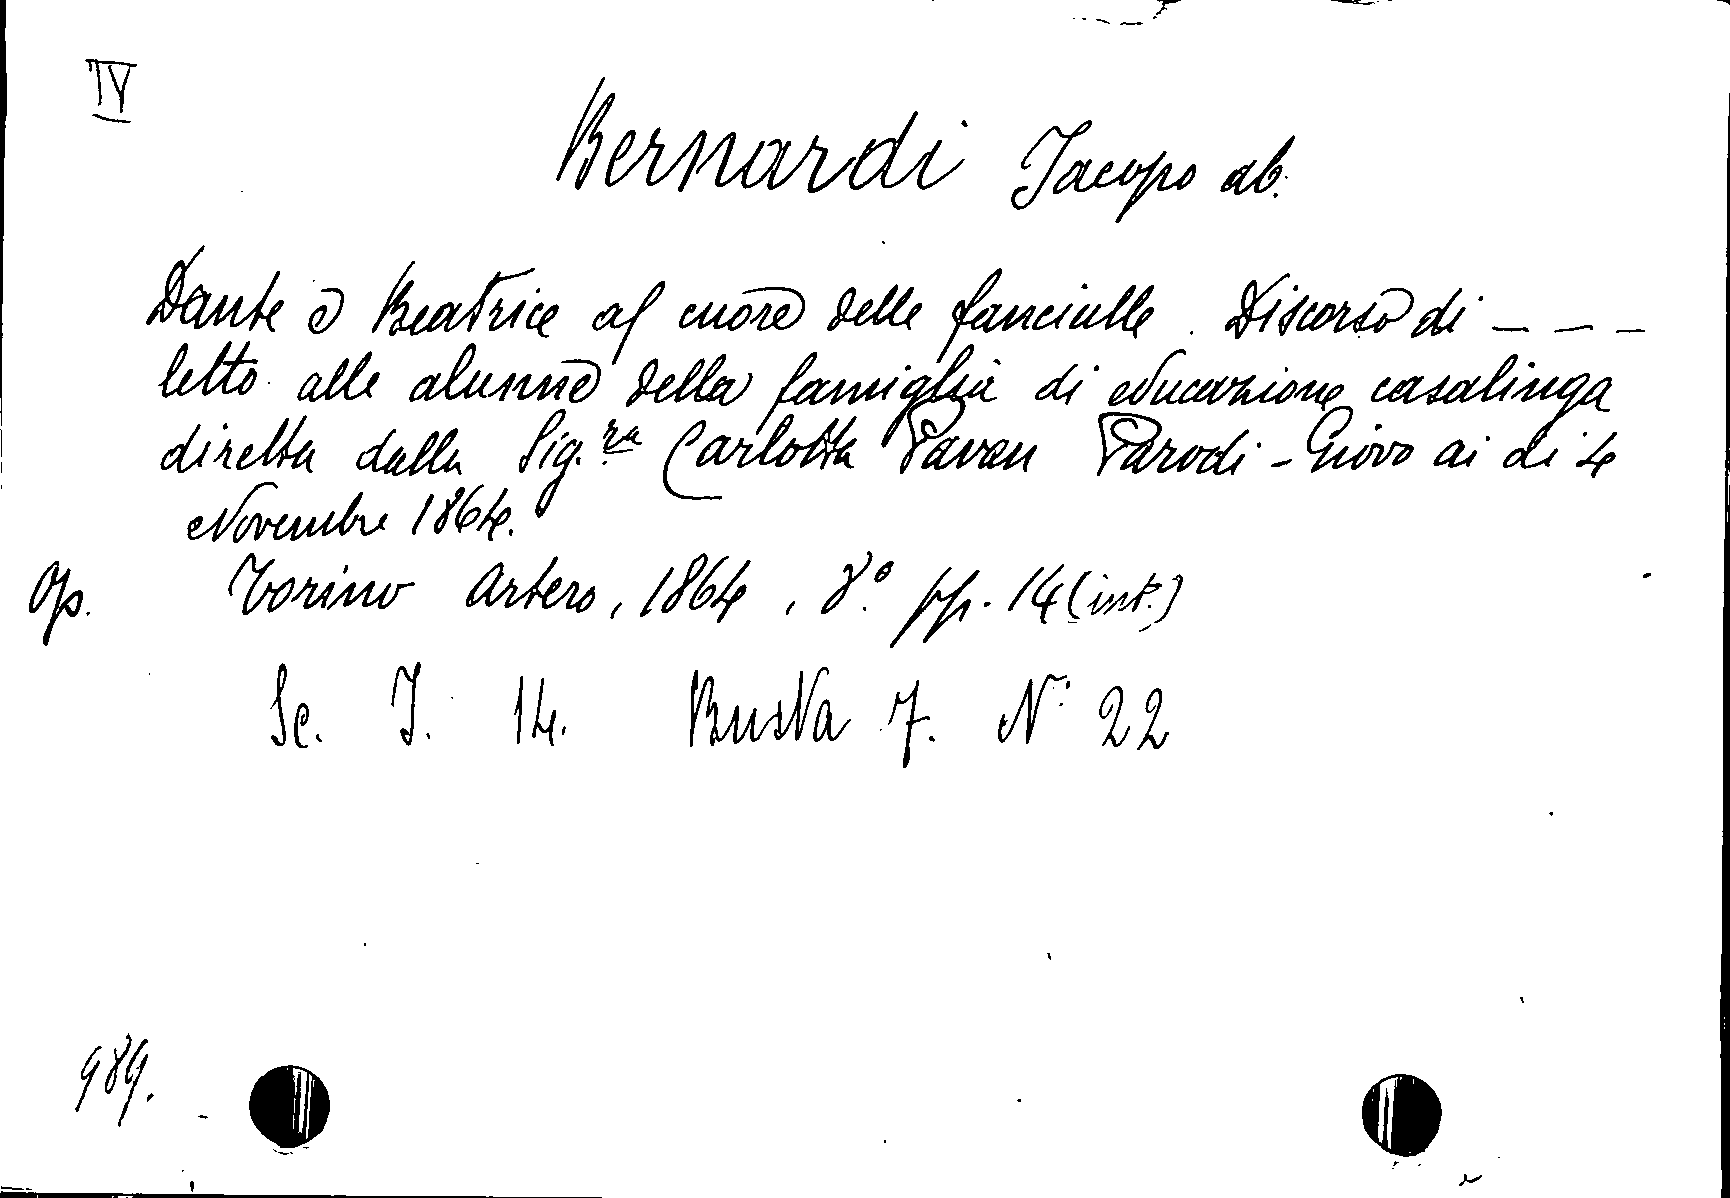 IV
Bernardi Jacopo ab.
Dante e Beatrice al cuore delle fanciulle. Discorso di _ _ _
letto alle alunne della famiglia di educazione casalinga
diretta dalla Sig.ra Carlotta Pavan Parodi-Giovo ai di 4
Novembre 1864.
Op. Torino Artero, 1864, 8.° pp. 14 (int.)
Sc. I. 14. Busta 7. N. 22
989.